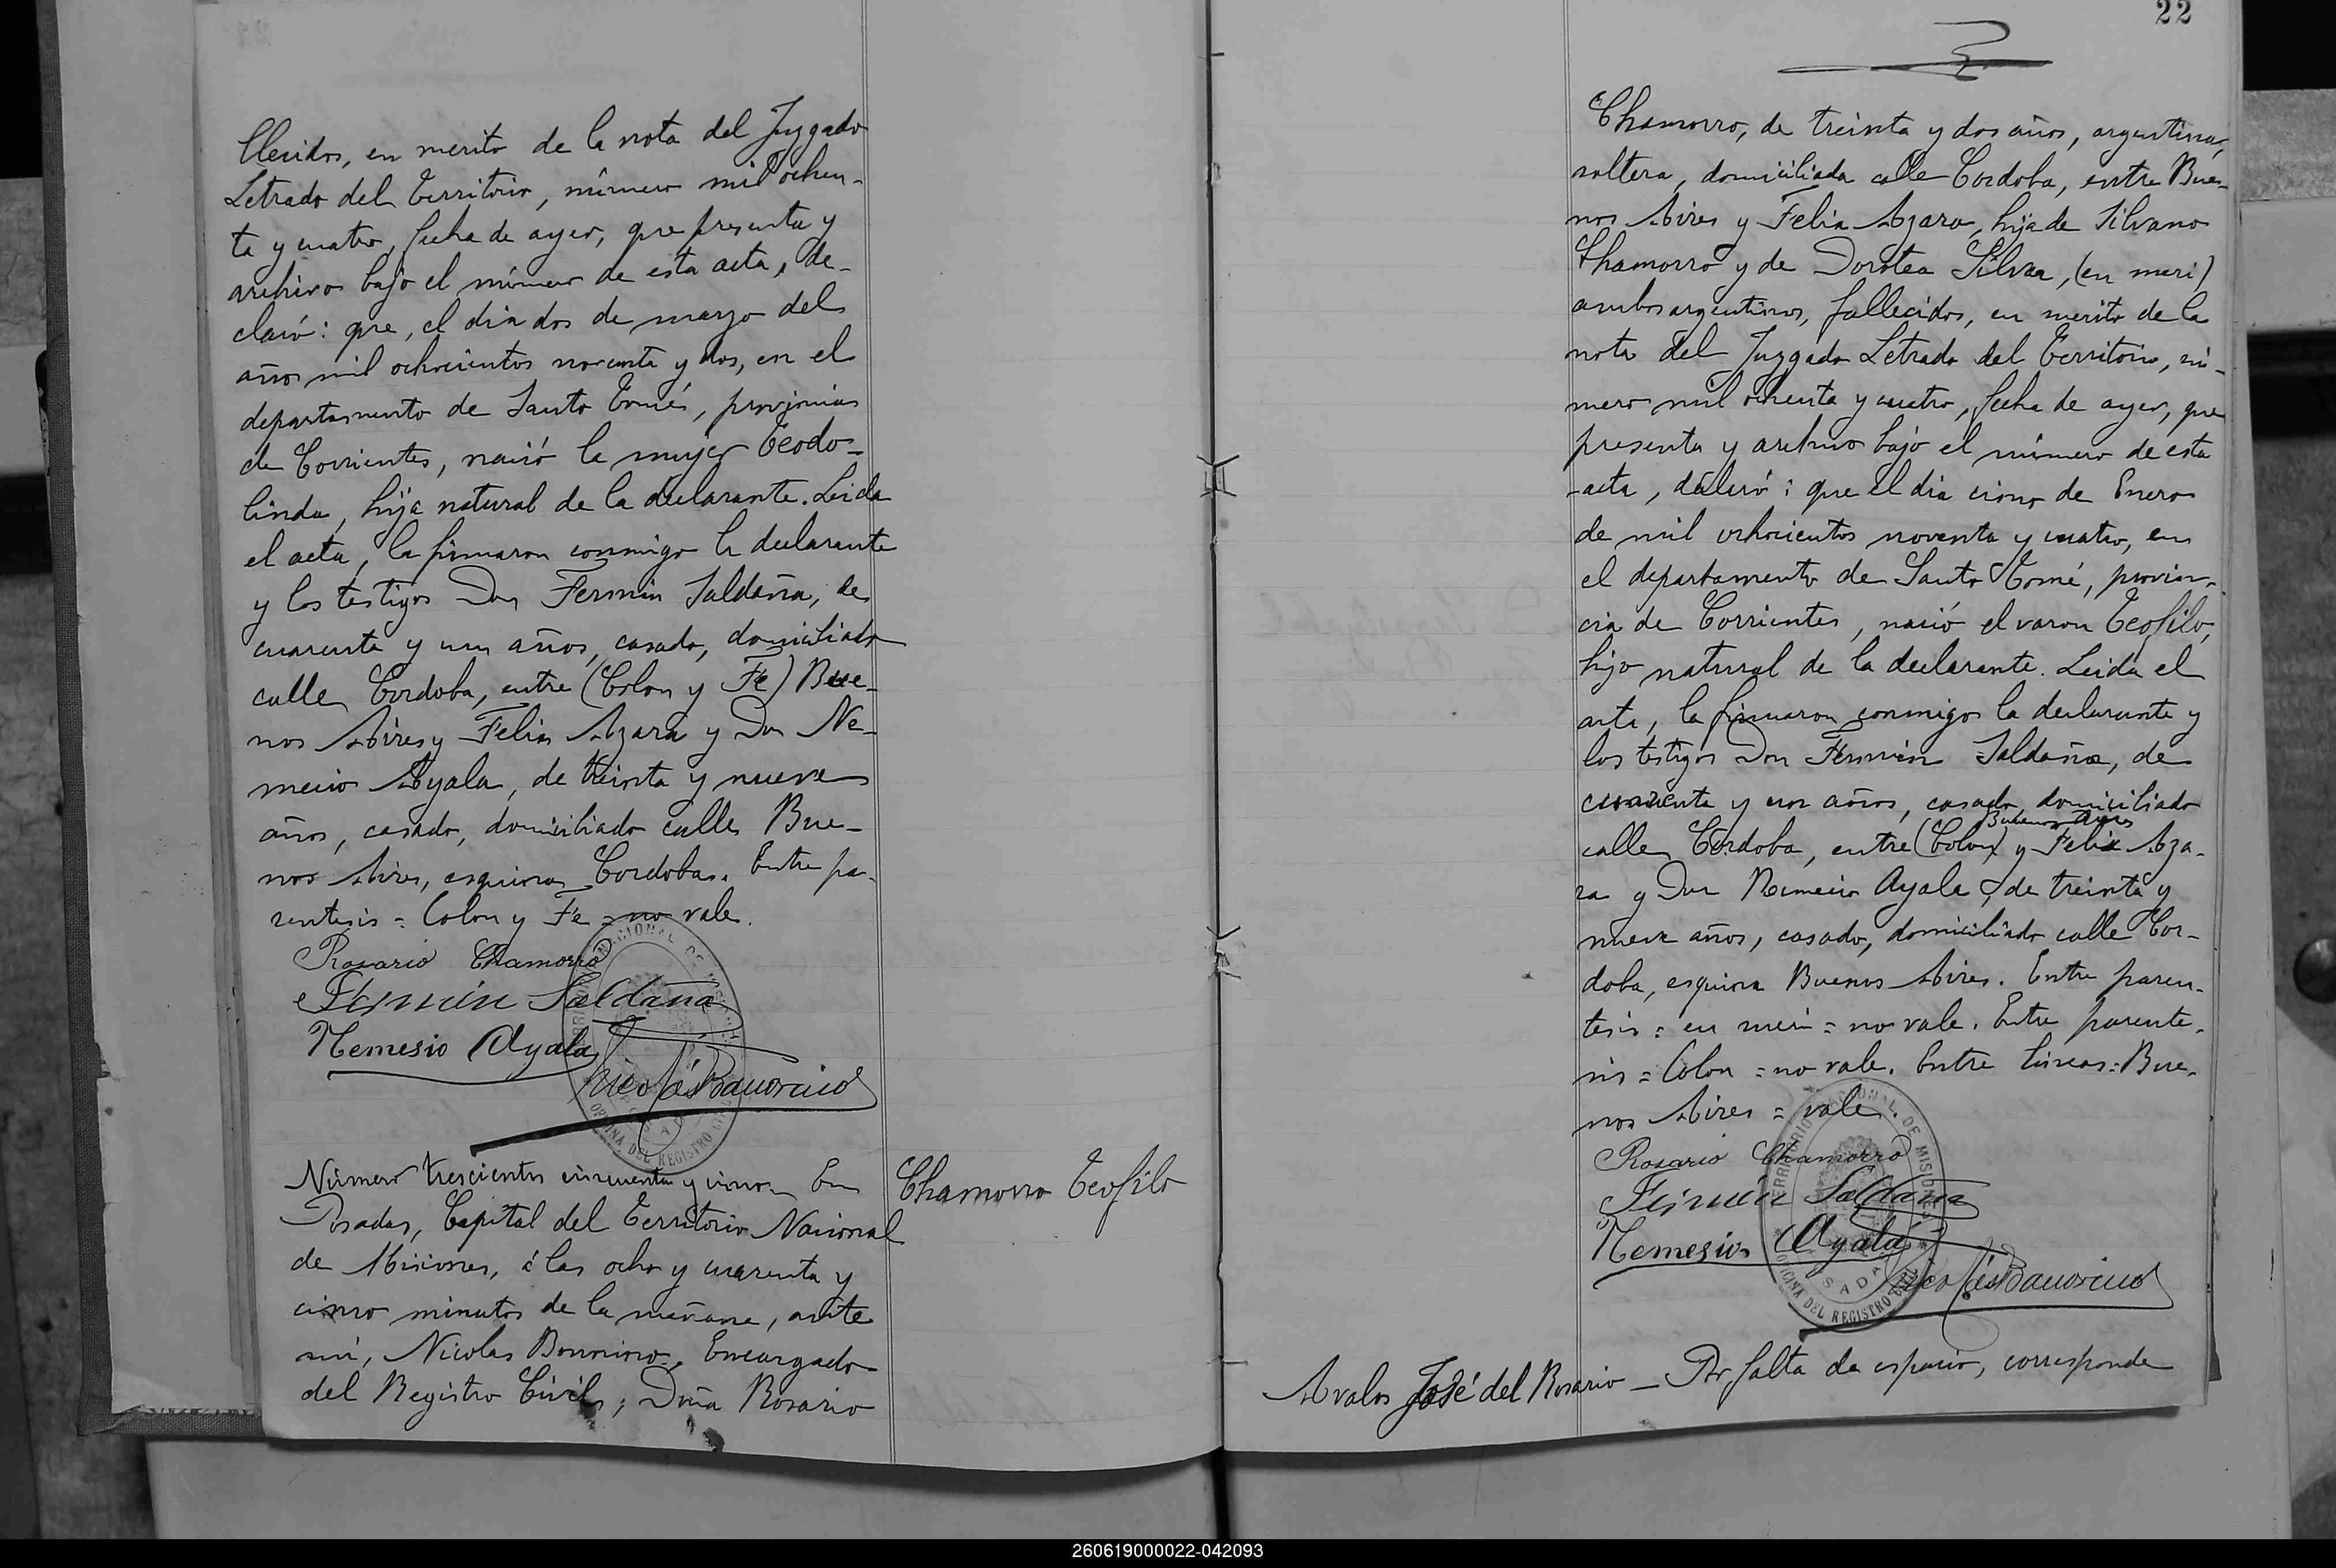 llecidos, en merito de la nota del Juzgado
Letrado del Territorio, número mil ochen-
ta y cuatro, fecha de ayer, que presenta y
archivo bajo el número de esta acta, de-
claró: que, el dia dos de mayo del
año mil ochocientos noventa y dos, en el
departamento de Santo Tomé, provincia
de Corrientes, nació la mujer Teodo-
linda, hija natural de la declarante. Leida
el acta, la firmaron conmigo la declarante
y los testigos Don Fermin Saldaña, de
cuarenta y un años, casado, domiciliado
calle Cordoba, entre (Colon y Fe) Bue-
nos Aires y Felix Azara y Don Ne-
mecio Ayala, de treinta y nueve
años, casado, domiciliado calle Bue-
nos Aires, esquina Cordoba. Entre pa-
rentesis = Colon y Fe = no vale.
Rosario Chamorro
Fermín Saldaña
Nemesio Ayala
Nicolás Bonorino
Número trescientos cincuenta y cinco. En
Posadas, Capital del Territorio Nacional
de Misiones, á las ocho y cuarenta y
cinco minutos de la mañana, ante
mi, Nicolas Bonorino, Encargado
del Registro Civil; Doña Rosario
Chamorro Teofilo
22
Chamorro, de treinta y dos años, argentina,
soltera, domiciliada calle Cordoba, entre Bue-
nos Aires y Felix Azara, hija de Silvano
Chamorro y de Dorotea Silva, (en meri)
ambos argentinos, fallecidos, en merito de la
nota del Juzgado Letrado del Territorio, nú-
mero mil ochenta y cuatro, fecha de ayer, que
presenta y archivo bajo el número de esta
acta, declaró: que el dia cinco de Enero
de mil ochocientos noventa y cuatro, en
el departamento de Santo Tomé, provin-
cia de Corrientes, nació el varon Teofilo,
hijo natural de la declarante. Leida el
acta, la firmaron conmigo la declarante y
los testigos Don Fermin Saldaña, de
cuarenta y un años, casado, domiciliado
Buenos Aires
calle Cordoba, entre (Colon) y Felix Aza-
ra y Don Nemecio Ayala, de treinta y
nueve años, casado, domiciliado calle Cor-
doba, esquina Buenos Aires. Entre paren-
tesis = en meri = no vale. Entre parente-
sis = Colon = no vale. Entre lineas = Bue-
nos Aires = vale.
Rosario Chamorro
Fermín Saldaña
Nemesio Ayala
Nicolás Bonorino
TERRITORIO NACIONAL DE MISIONES
OFICINA DEL REGISTRO CIVIL
POSADAS
Avalos José del Rosario — Por falta de espacio, corresponde
260619000022-042093